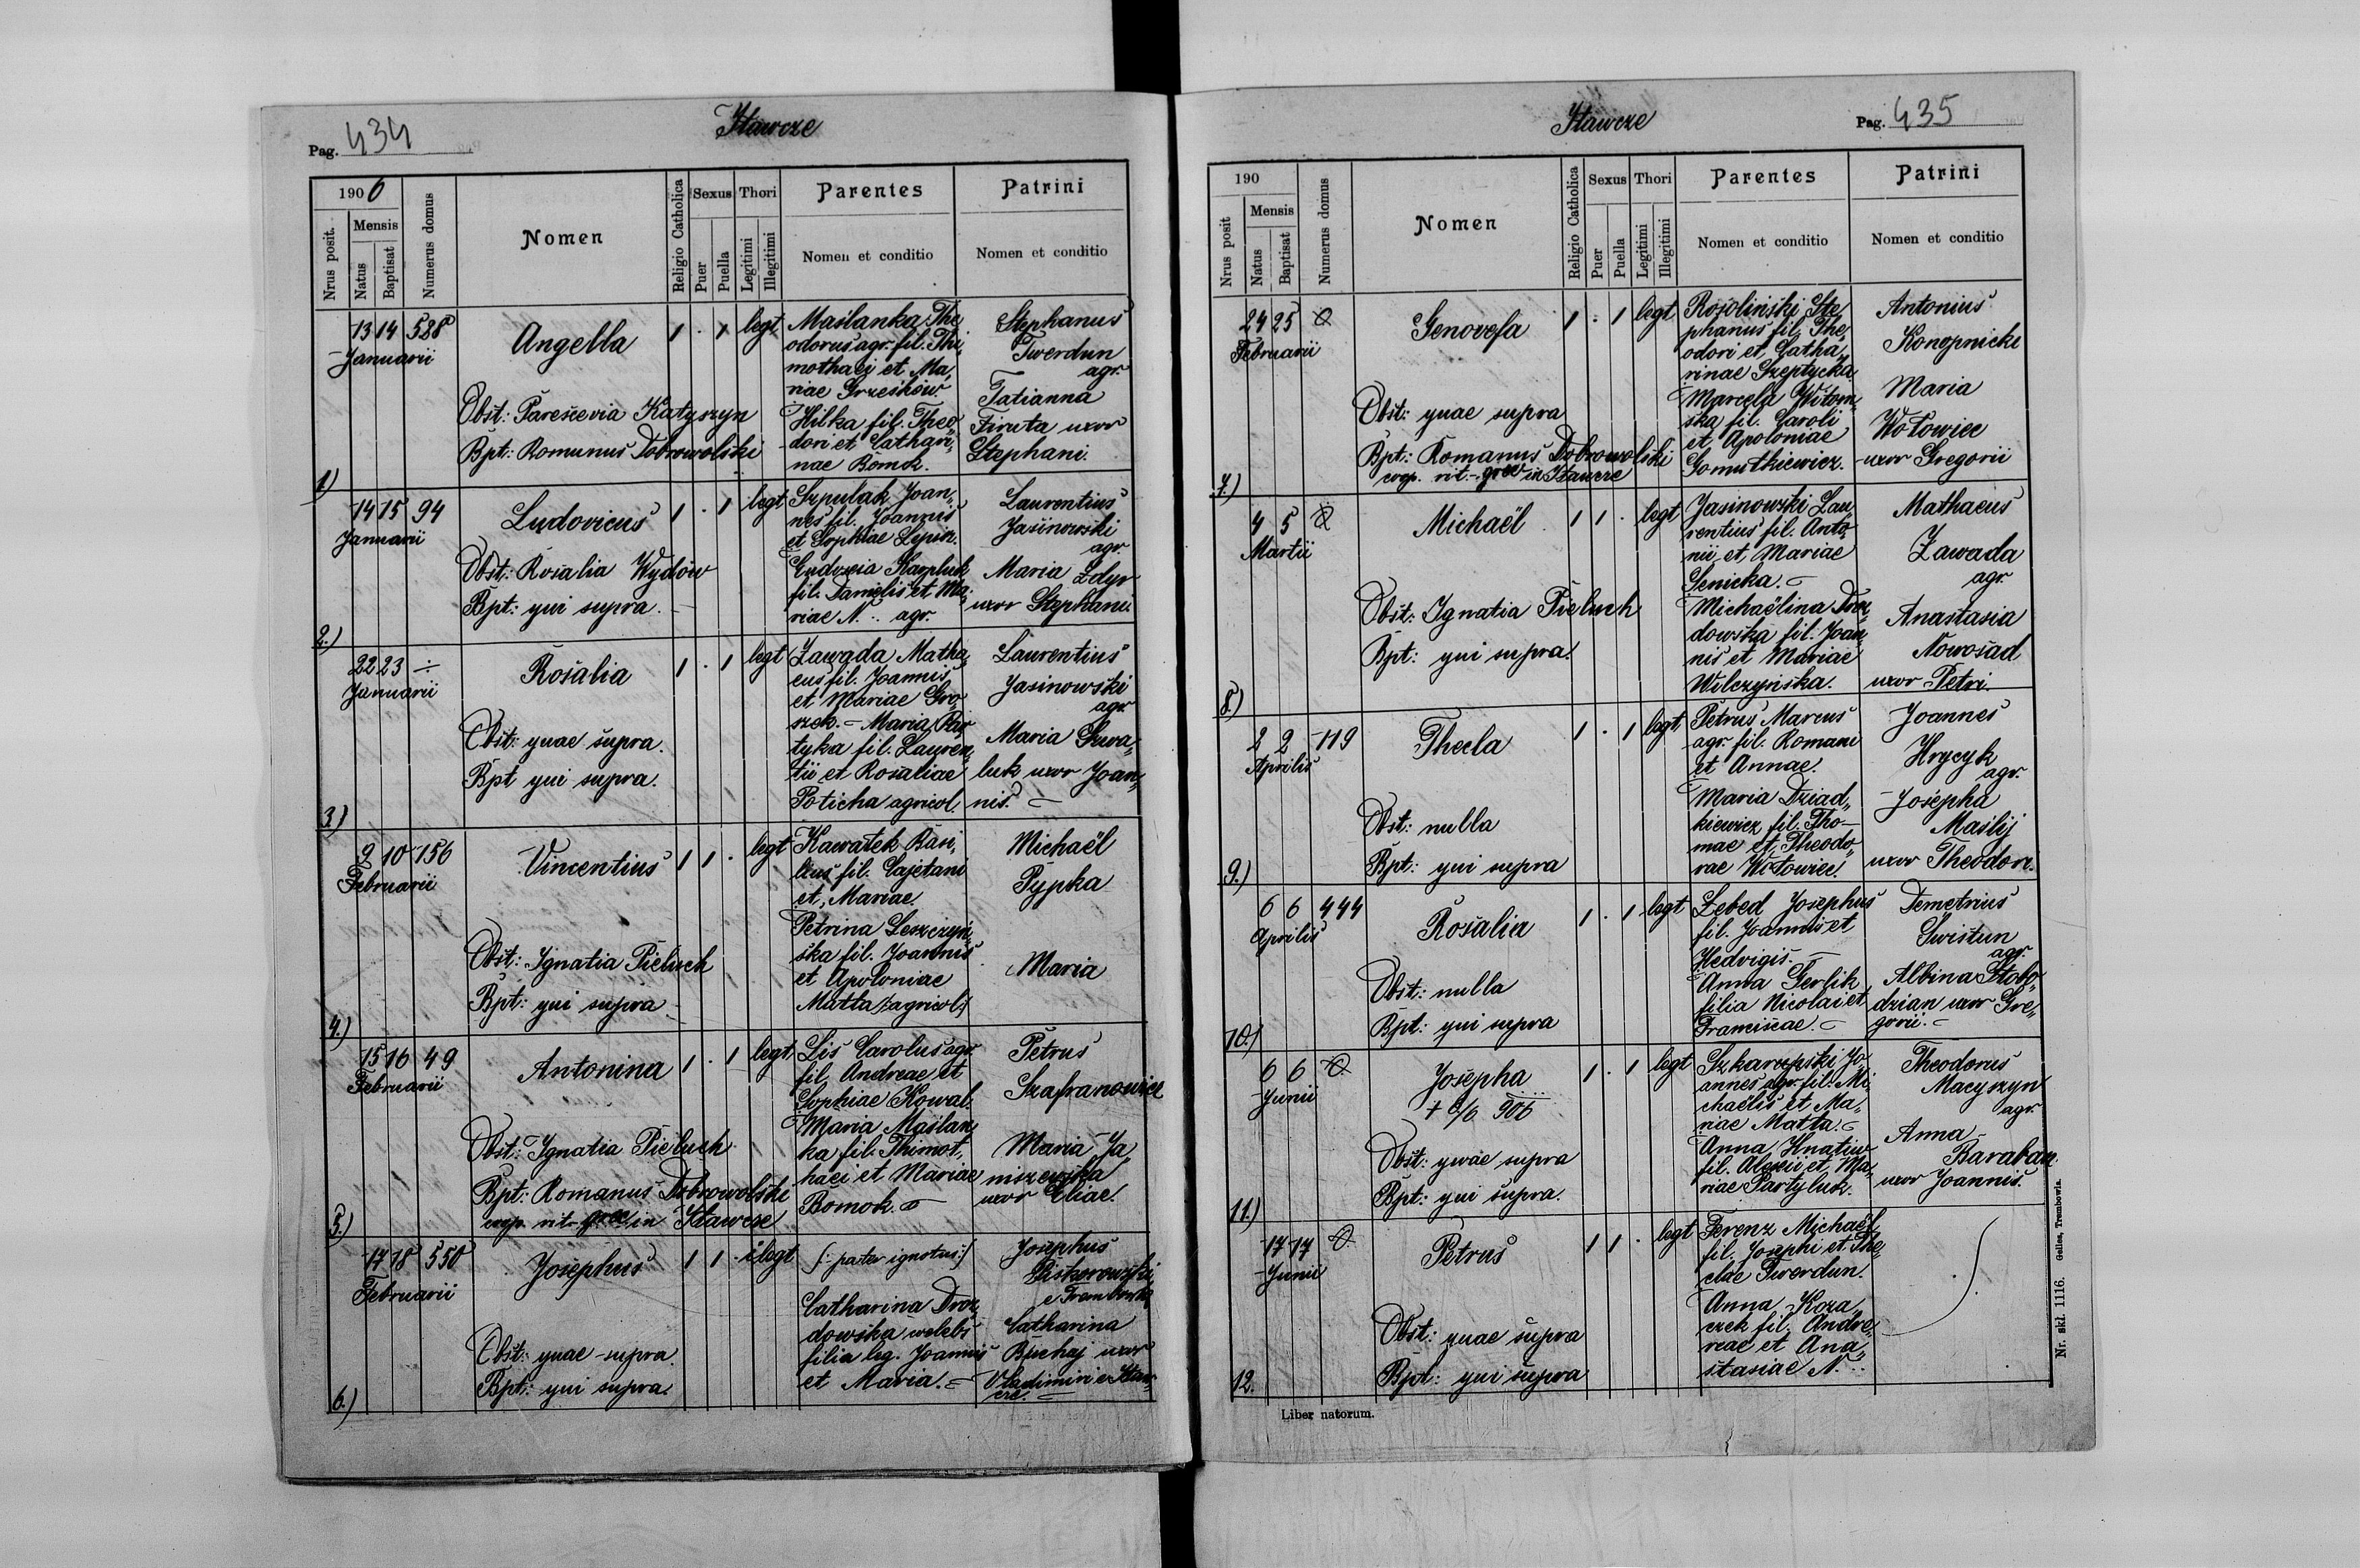 Pag. 434
Iławcze
1906
Nrus posit.
Mensis
Natus
Baptisat
Numerus domus
Nomen
Religio Catholica
Sexus
Puer
Puella
Thori
Legitimi
Illegitimi
Parentes
Nomen et conditio
Patrini
Nomen et conditio
1)
13 14 528
Januarii
Angella
1 . 1 legt
Obst: Parescevia Katyszyn
Bpt: Romanus Dobrowolski
Maślanka The„
odorus agr. fil. Thi„
mothaei et Ma„
riae Grześków.
Hilka fil. Theo„
dori et Cathari„
nae Bomok.
Stephanus
Twerdun
agr.
Tatianna
Firuta uxor
Stephani.
2.)
14 15 94
Januarii
Ludovicus
1 . 1 legt
Obst: Rosalia Wydów
Bpt: qui supra.
Szpulak Joan„
nes fil. Joannis
et Sophiae Lepin.
Eudoxia Karpluk
fil. Danielis et Ma„
riae N. .. agr.
Laurentius
Jasinowski
agr.
Maria Zdyr
uxor Stephani.
3.)
22 23 ÷
Januarii
Rosalia
1 . 1 legt
Obst: quae supra.
Bpt qui supra.
Zawada Matha„
eus fil. Joannis
et Mariae Gro„
szek. – Maria Par„
tyka fil. Lauren„
tii et Rosaliae
Poticha agricol.
Laurentius
Jasinowski
agr.
Maria Szwa„
luk uxor Joan„
nis.
4.)
9 10 156
Februarii
Vincentius
1 1 . legt
Obst: Ignatia Pieluch
Bpt: qui supra
Kawałek Basi„
lius fil. Cajetani
et Mariae.
Petrina Leszczyń„
ska fil. Joannis
et Apoloniae
Matta /:agricol:/
Michaël
Pypka
Maria
5.)
15 16 49
Februarii
Antonina
1 . 1 legt
Obst: Ignatia Pieluch
Bpt: Romanus Dobrowolski
coop. rit. graec in Iławcze
Lis Carolus agr.
fil. Andreae et
Sophiae Kowal.
Maria Maślan„
ka fil. Thimot„
haei et Mariae
Bomok.
Petrus
Szafranowicz
Maria Ja„
niszewska
uxor Eliae.
6.)
17 18 550
Februarii
Josephus
1 1 . ilegt
Obst: quae supra
Bpt: qui supra.
/: pater ignotus:/
Catharina Droz„
dowska
filia leg. Joannis
et Maria.
Josephus
Piskorowski
e Trembowla
Catharina
uxor
Vladimiri e Iław„
cze.
Iławcze
Pag. 435
190
Nrus posit
Mensis
Natus
Baptisat
Numerus domus
Nomen
Religio Catholica
Sexus
Puer
Puella
Thori
Legitimi
Illegitimi
Parentes
Nomen et conditio
Patrini
Nomen et conditio
7.)
24 25
Februarii
Genovefa
1 . 1 legt
Obst: quae supra
Bpt: Romanus Dobrowolski
coop. rit. graec in Iławcze
Rosoliński Ste„
phanus fil. The„
odori et Catha„
rinae Szeptycka.
Marcela Witom„
ska fil. Caroli
et Apoloniae
Gomutkiewicz.
Antonius
Konopnicki
Maria
Wołowiec
uxor Gregorii
8.)
4 5
Martii
Michaël
1 1 . legt
Obst: Ignatia Pieluch
Bpt: qui supra.
Jasinowski Lau„
rentius fil. Anto„
nii et Mariae
Senicka.
Michaëlina Droz„
dowska fil. Joan„
nis et Mariae
Wilczyńska.
Mathaeus
Zawada
agr.
Anastasia
Nowosad
uxor Petri.
9.)
2 2 119
Aprilis
Thecla
1 . 1 legt
Obst: nulla
Bpt: qui supra
Petrus Marcus
agr. fil. Romani
et Annae.
Maria Dziad„
kiewicz fil. Tho–
mae et Theodo„
rae Wołowiec.
Joannes
Hrycyk
agr.
Josepha
Maślij
uxor Theodori.
10.)
6 6 444
Aprilis
Rosalia
1 . 1 legt
Obst: nulla
Bpt: qui supra
Lebed Josephus
fil. Joannis et
Hedvigis.
Anna Gerlik
filia Nicolai et
Franciscae.
Demetrius
Świstun
agr.
Albina Słobo„
dzian uxor Gre„
gorii.
11.)
6 6
Junii
Josepha
† 906
1 . 1 legt
Obst: quae supra
Bpt: qui supra.
Szkarzepski Jo„
annes agr. fil. Mi„
chaëlis et Ma„
riae Matta.
Anna Hnatiw
fil. Alexii et Ma„
riae Partyluk.
Theodorus
Macyszyn
agr.
Anna
Baraban
uxor Joannis.
12.
17 17
Junii
Petrus
1 1 . legt
Obst: quae supra
Bpt: qui supra
Ferenz Michaël
fil. Josephi et The„
clae Twerdun.
Anna Koza„
czek fil. Andre„
reae et Ana„
stasiae N...
Liber natorum.
Nr. skł. 1116. Gelles, Trembowla.